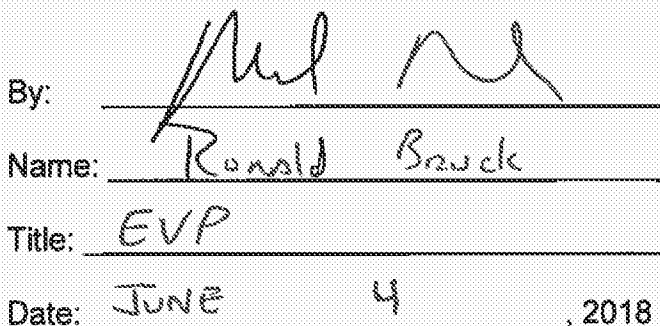 By:
Name: Ronald Bruck
Title: EVP
Date: JUNE 4, 2018